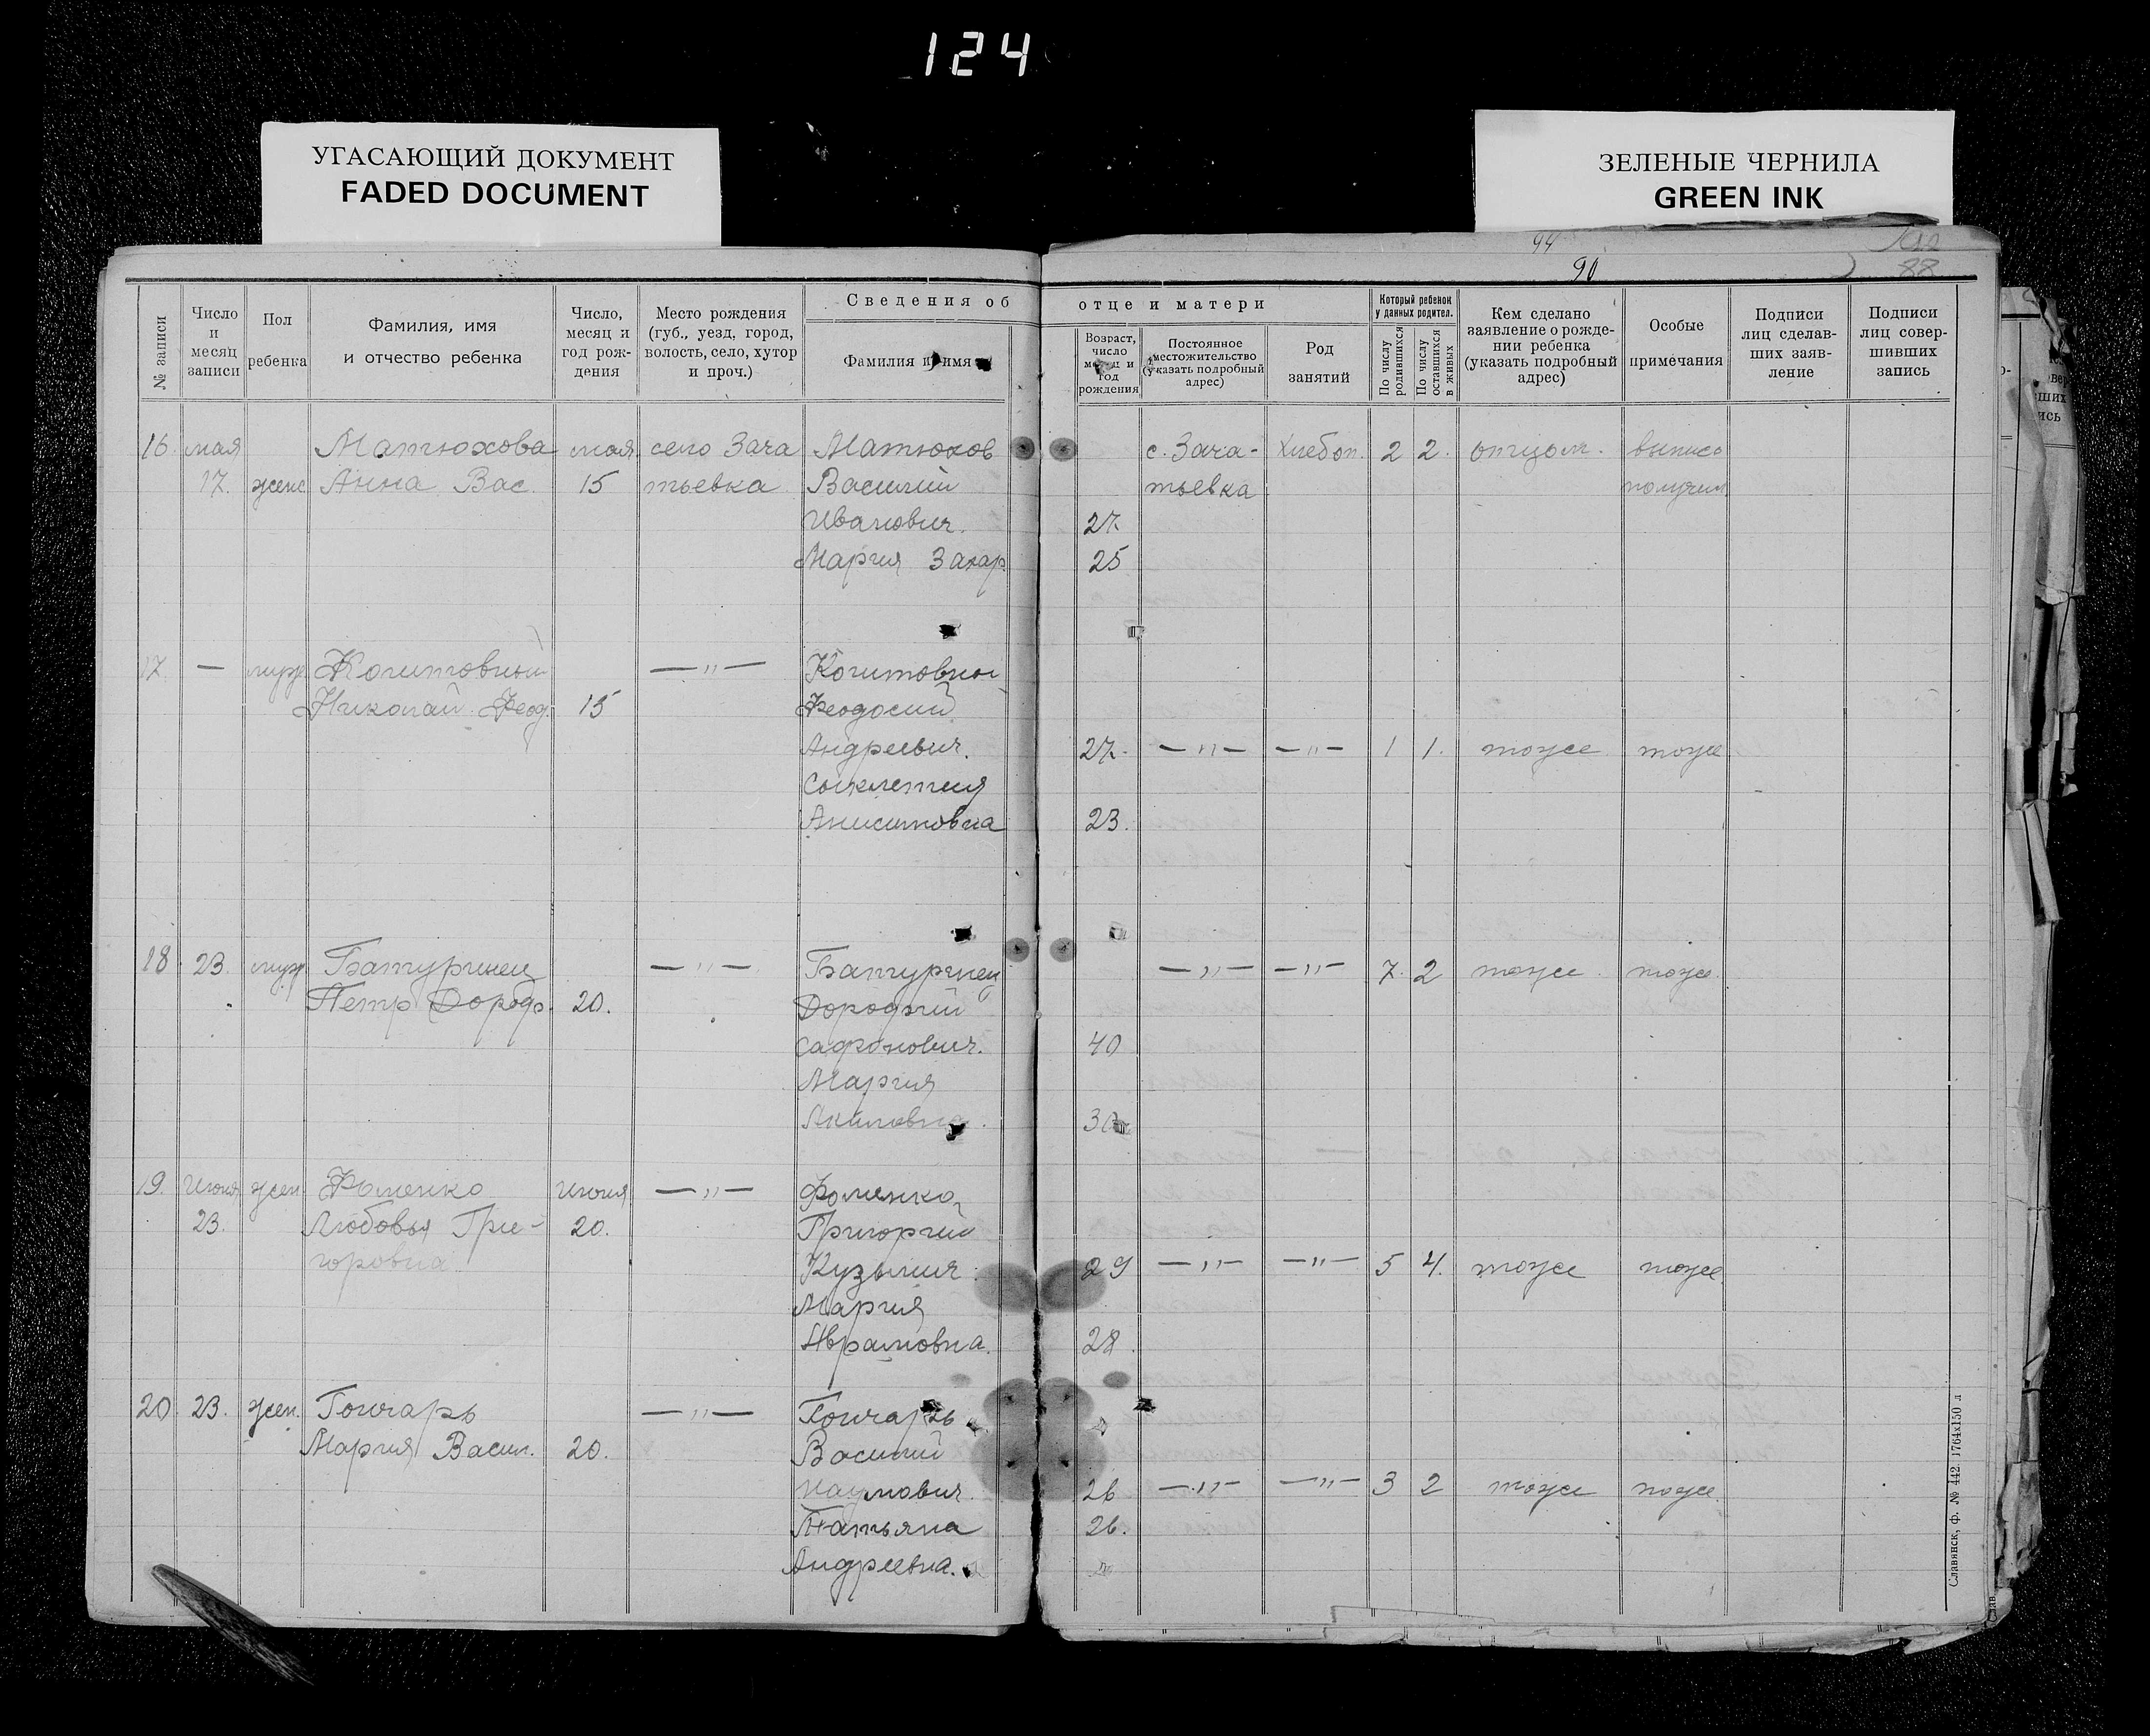 124
УГАСАЮЩИЙ ДОКУМЕНТ
FADED DOCUMENT
ЗЕЛЕНЫЕ ЧЕРНИЛА
GREEN INK
94
90
88
№ записи
Число и месяц записи
Пол ребенка
Фамилия, имя и отчество ребенка
Число, месяц и год рождения
Место рождения (губ., уезд, город, волость, село, хутор и проч.)
Сведения об отце и матери
Фамилия и имя
Возраст, число месяц и год рождения
Постоянное местожительство (указать подробный адрес)
Род занятий
Который ребенок у данных родител.
По числу родившихся
По числу оставшихся в живых
Кем сделано заявление о рождении ребенка (указать подробный адрес)
Особые примечания
Подписи лиц сделавших заявление
Подписи лиц совершивших запись
16 мая Матюхова мая село Зача Матюхов с. Зача- Хлебоп. 2 2. отцом. выпись
17. женс Анна Вас. 15 тьевка Василий тьевка получил
Иванович. 27.
Мария Захар. 25
17. — муж. —〃— 
Николай Феод. 15 Феодосий
Андреевич. 27. —〃— —〃— 1 1. тоже тоже
Синклетия
Анисимовна 23.
18. 23. муж. Батуринец —〃— Батуринец —〃— —〃— 7. 2 тоже тоже.
Петр Дороф. 20. Дорофий
Сафонович. 40
Мария
Акимовна.
19. Июня жен. Фоменко Июня —〃— Фоменко
23. Любовья Гри- 20. Григорий
горовна Кузьмич 29 —〃— —〃— 5 4. тоже тоже
Мария
Аврамовна. 28.
20. 23. жен. Гончарь —〃— Гончарь
Мария Васил. 20. Василий
Наумович. 26 —〃— —〃— 3 2 тоже тоже.
Татьяна 26.
Андреевна.
Славянск, ф. № 442. 1764х150 л